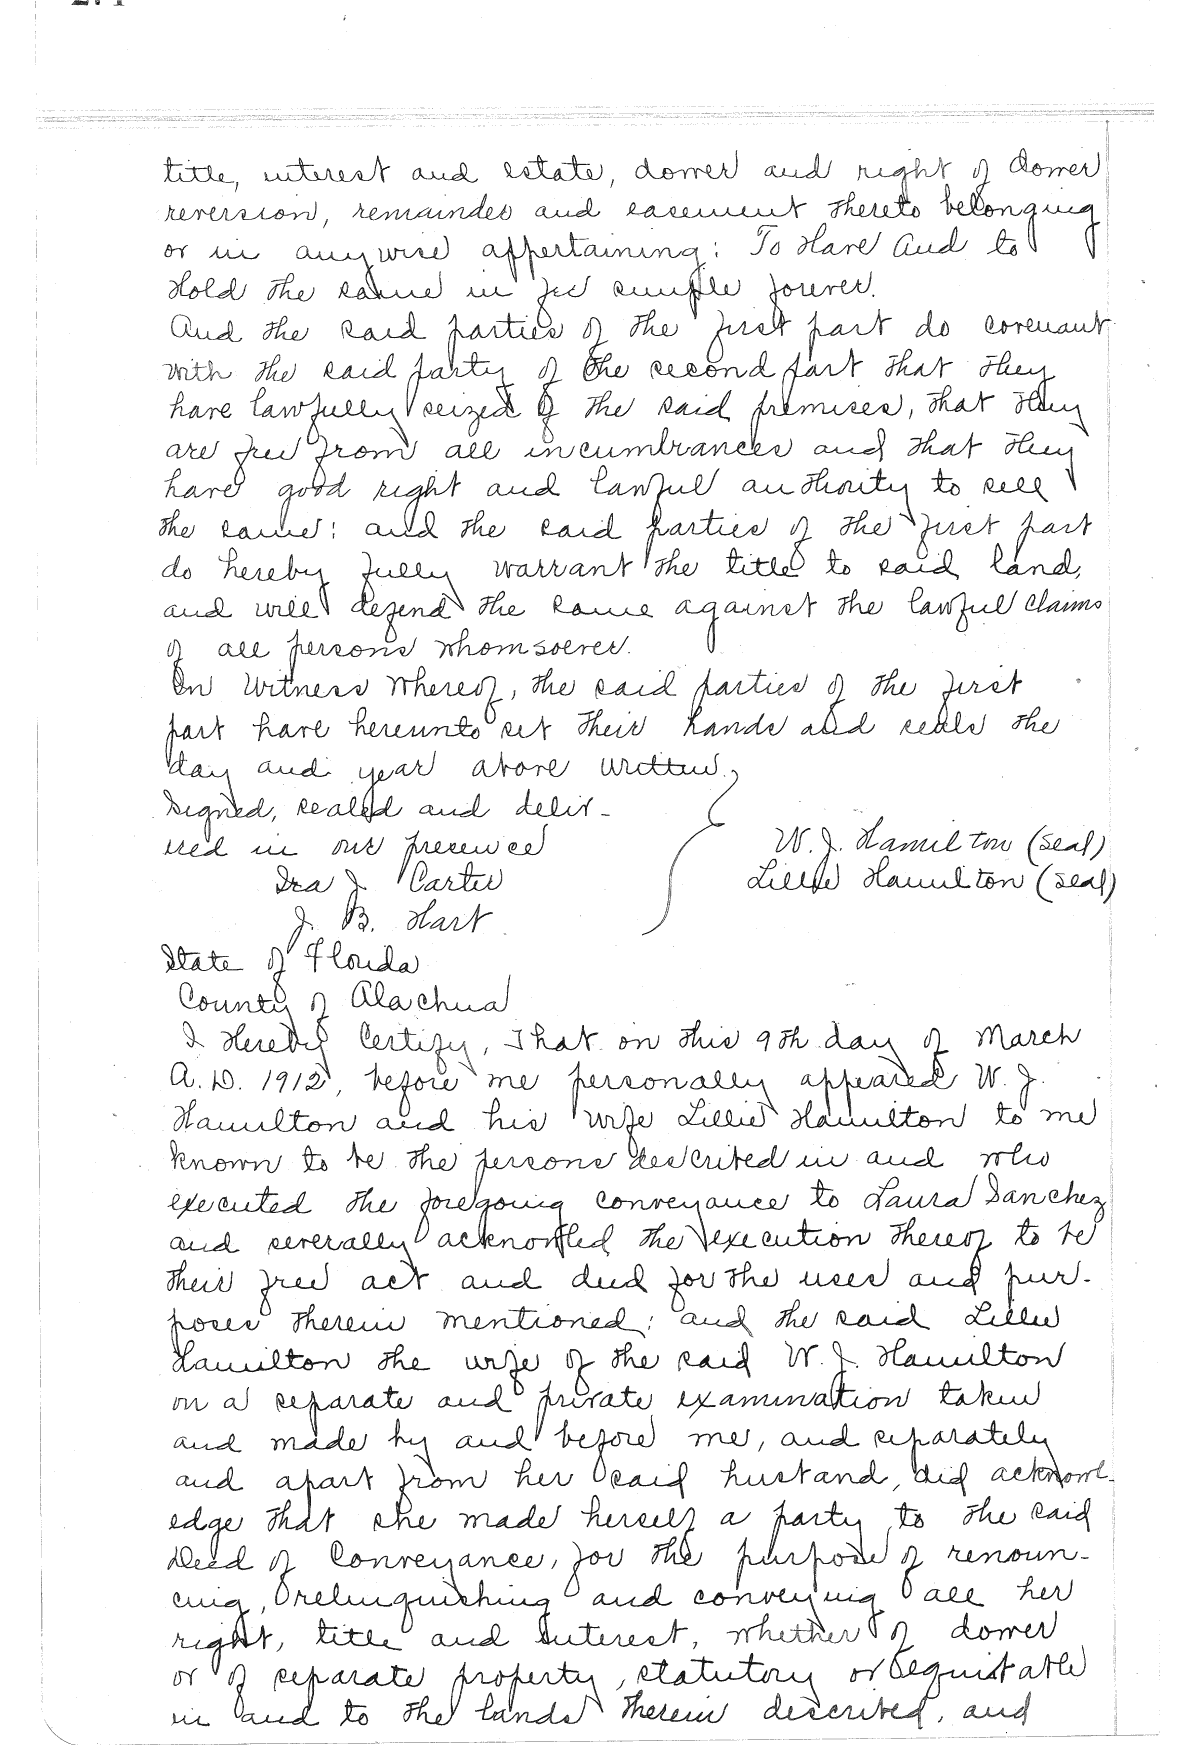 title, interest and estate, dower and right of dower
reversion, remainder and easement thereto belonging
or in anywise appertaining: To Have And to
Hold the same in fee simple forever.
And the said parties of the first part do covenant
with the said party of the second part that they
have lawfully seized of the said premises, that they
are free from all incumbrances and that they
have good right and lawful authority to sell
the same: and the said parties of the first part
do hereby fully warrant the title to said land,
and will defend the same against the lawful claims
of all persons whomsoever.
In Witness Whereof, the said parties of the first
part have hereunto set their hands and seals the
day and year above written.
Signed, sealed and deliv-
ered in our presence
W. J. Hamilton (seal)
Ira J. Carter
Lillie Hamilton (seal)
J. B. Hart
State of Florida
County of Alachua
I Hereby Certify, That on this 9th day of March
A.D. 1912, before me personally appeared W. J.
Hamilton and his wife Lillie Hamilton to me
known to be the persons described in and who
executed the foregoing conveyance to Laura Sanchez
and severally acknowled the execution thereof to be
their free act and deed for the uses and pur-
poses therein mentioned; and the said Lillie
Hamilton the wife of the said W. J. Hamilton
on a separate and private examination taken
and made by and before me, and separately
and apart from her said husband, did acknowl-
edge that she made herself a party to the said
Deed of Conveyance, for the purpose of renoun-
cing, relinquishing and conveying all her
right, title and interest, whether of dower
or of separate property, statutory or equitable
in and to the lands therein described, and